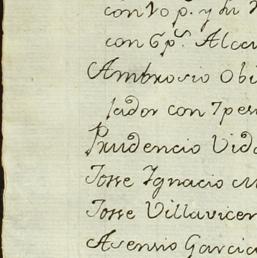 con 10 p. y su
con 6 p.s Alca
Ambrosio Obi
jador con 7 pes
Prudencio Vida
Josse Ygnacio M
Josse Villavicen
Asensio Garcia